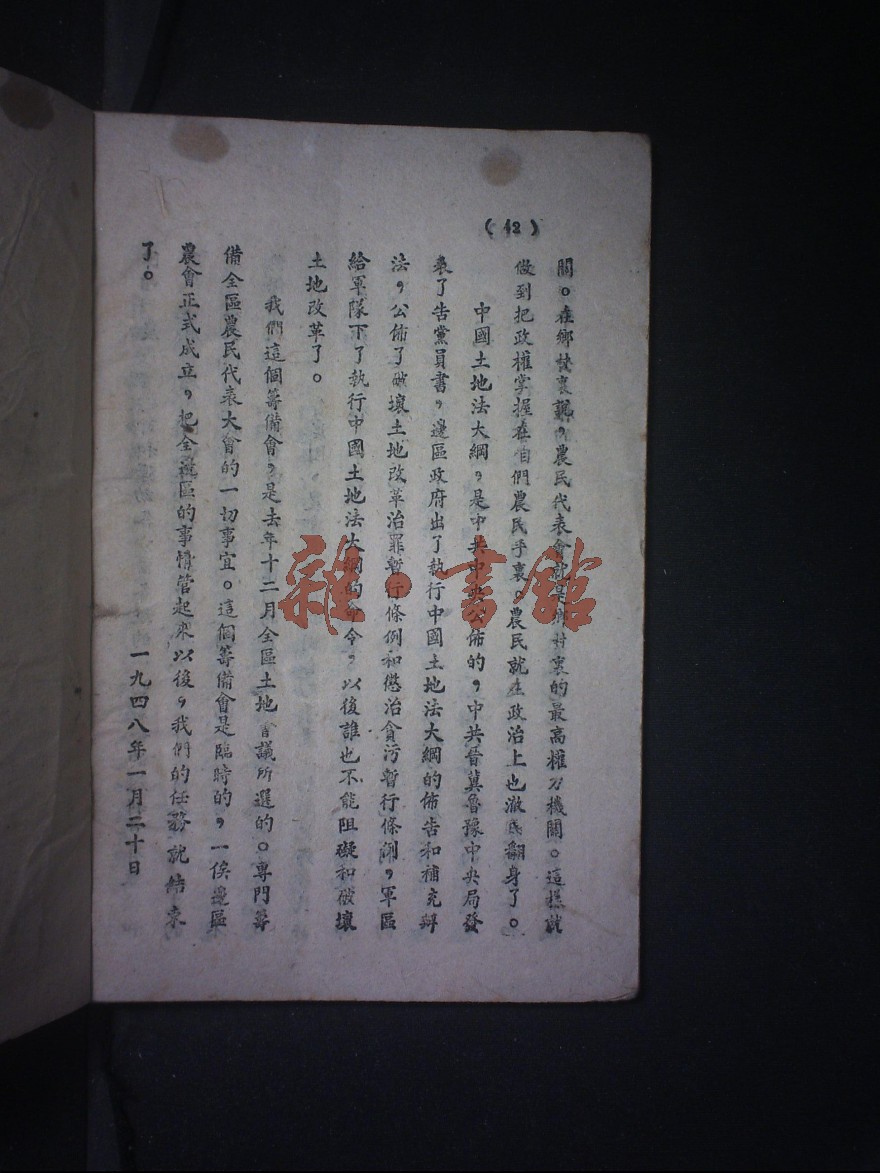 (42)
關。在鄉村裏說，農民代表會就是鄉村裏的最高權力機關。這樣就
做到把政權掌握在咱們農民手裏。農民就在政治上也澈底翻身了。
中國土地法大綱，是中共中央公佈的，中共晉冀魯豫中央局發
表了告黨員書，邊區政府出了執行中國土地法大綱的佈告和補充辦
法，公佈了破壞土地改革治罪暫行條例和懲治貪污暫行條例，軍區
給軍隊下了執行中國土地法大綱的命令，以後誰也不能阻礙和破壞
土地改革了。
我們這個籌備會，是去年十二月全區土地會議所選的。專門籌
備全區農民代表大會的一切事宜。這個籌備會是臨時的，一俟邊區
農會正式成立，把全邊區的事情管起來以後，我們的任務就結束
了。
一九四八年一月二十日
雜·書館